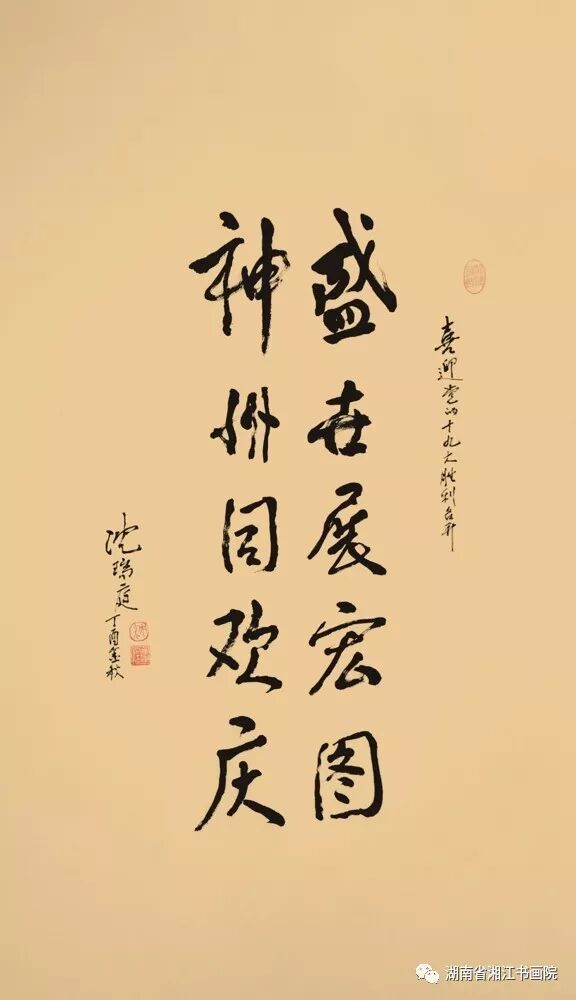 喜迎党的十九大胜利召开
盛世展宏图
神州同欢庆
沈瑞庭
丁酉金秋
湖南省湘江书画院